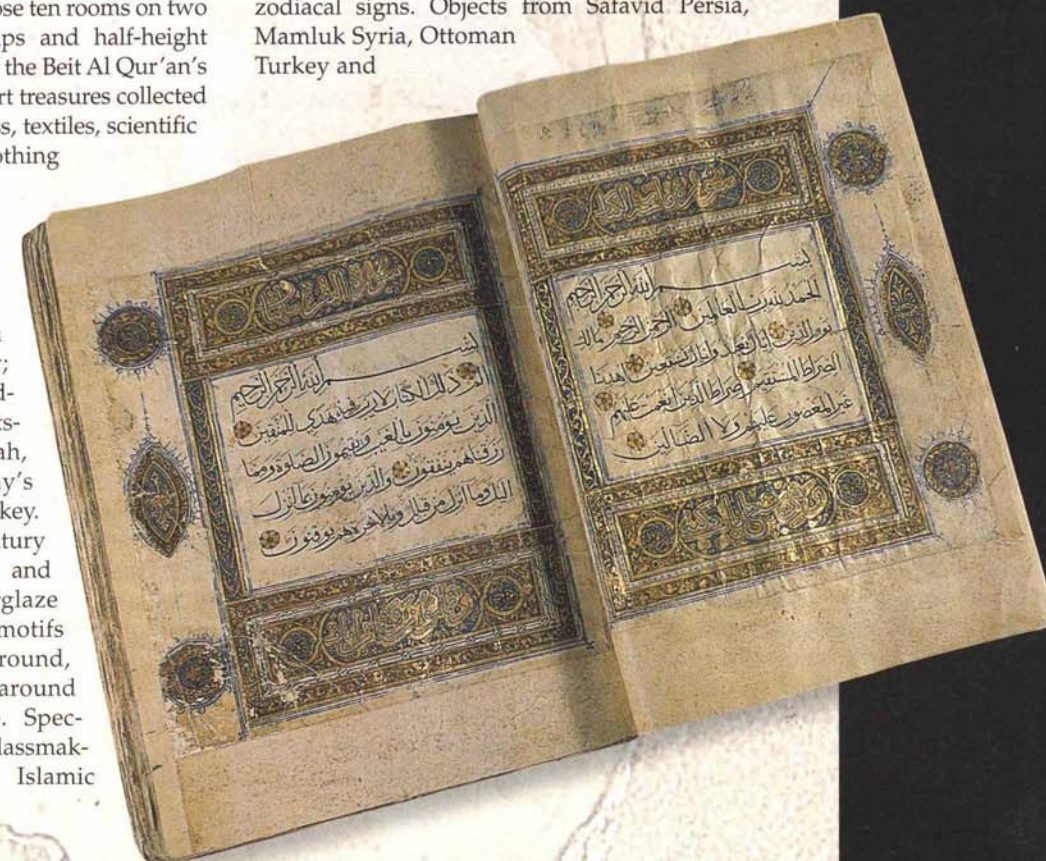 ose ten rooms on two
ps and half-height
the Beit Al Qur'an's
rt treasures collected
s, textiles, scientific
othing
;
d-
ts-
ah,
y's
key.
tury
and
glaze
motifs
round,
around
. Spec-
lassmak-
Islamic
zodiacal signs. Objects from Safavid Persia,
Mamluk Syria, Ottoman
Turkey and
بسم الله الرحمن الرحيم
الحمد لله رب العالمين الرحمن الرحيم مالك
يوم الدين اياك نعبد واياك نستعين اهدنا
الصراط المستقيم صراط الذين انعمت عليهم
غير المغضوب عليهم ولا الضالين
بسم الله الرحمن الرحيم
الم ذلك الكتاب لا ريب فيه هدى للمتقين
الذين يومنون بالغيب ويقيمون الصلوة ومما
رزقناهم ينفقون والذين يومنون بما انزل
اليك وما انزل من قبلك وبالاخرة هم يوقنون